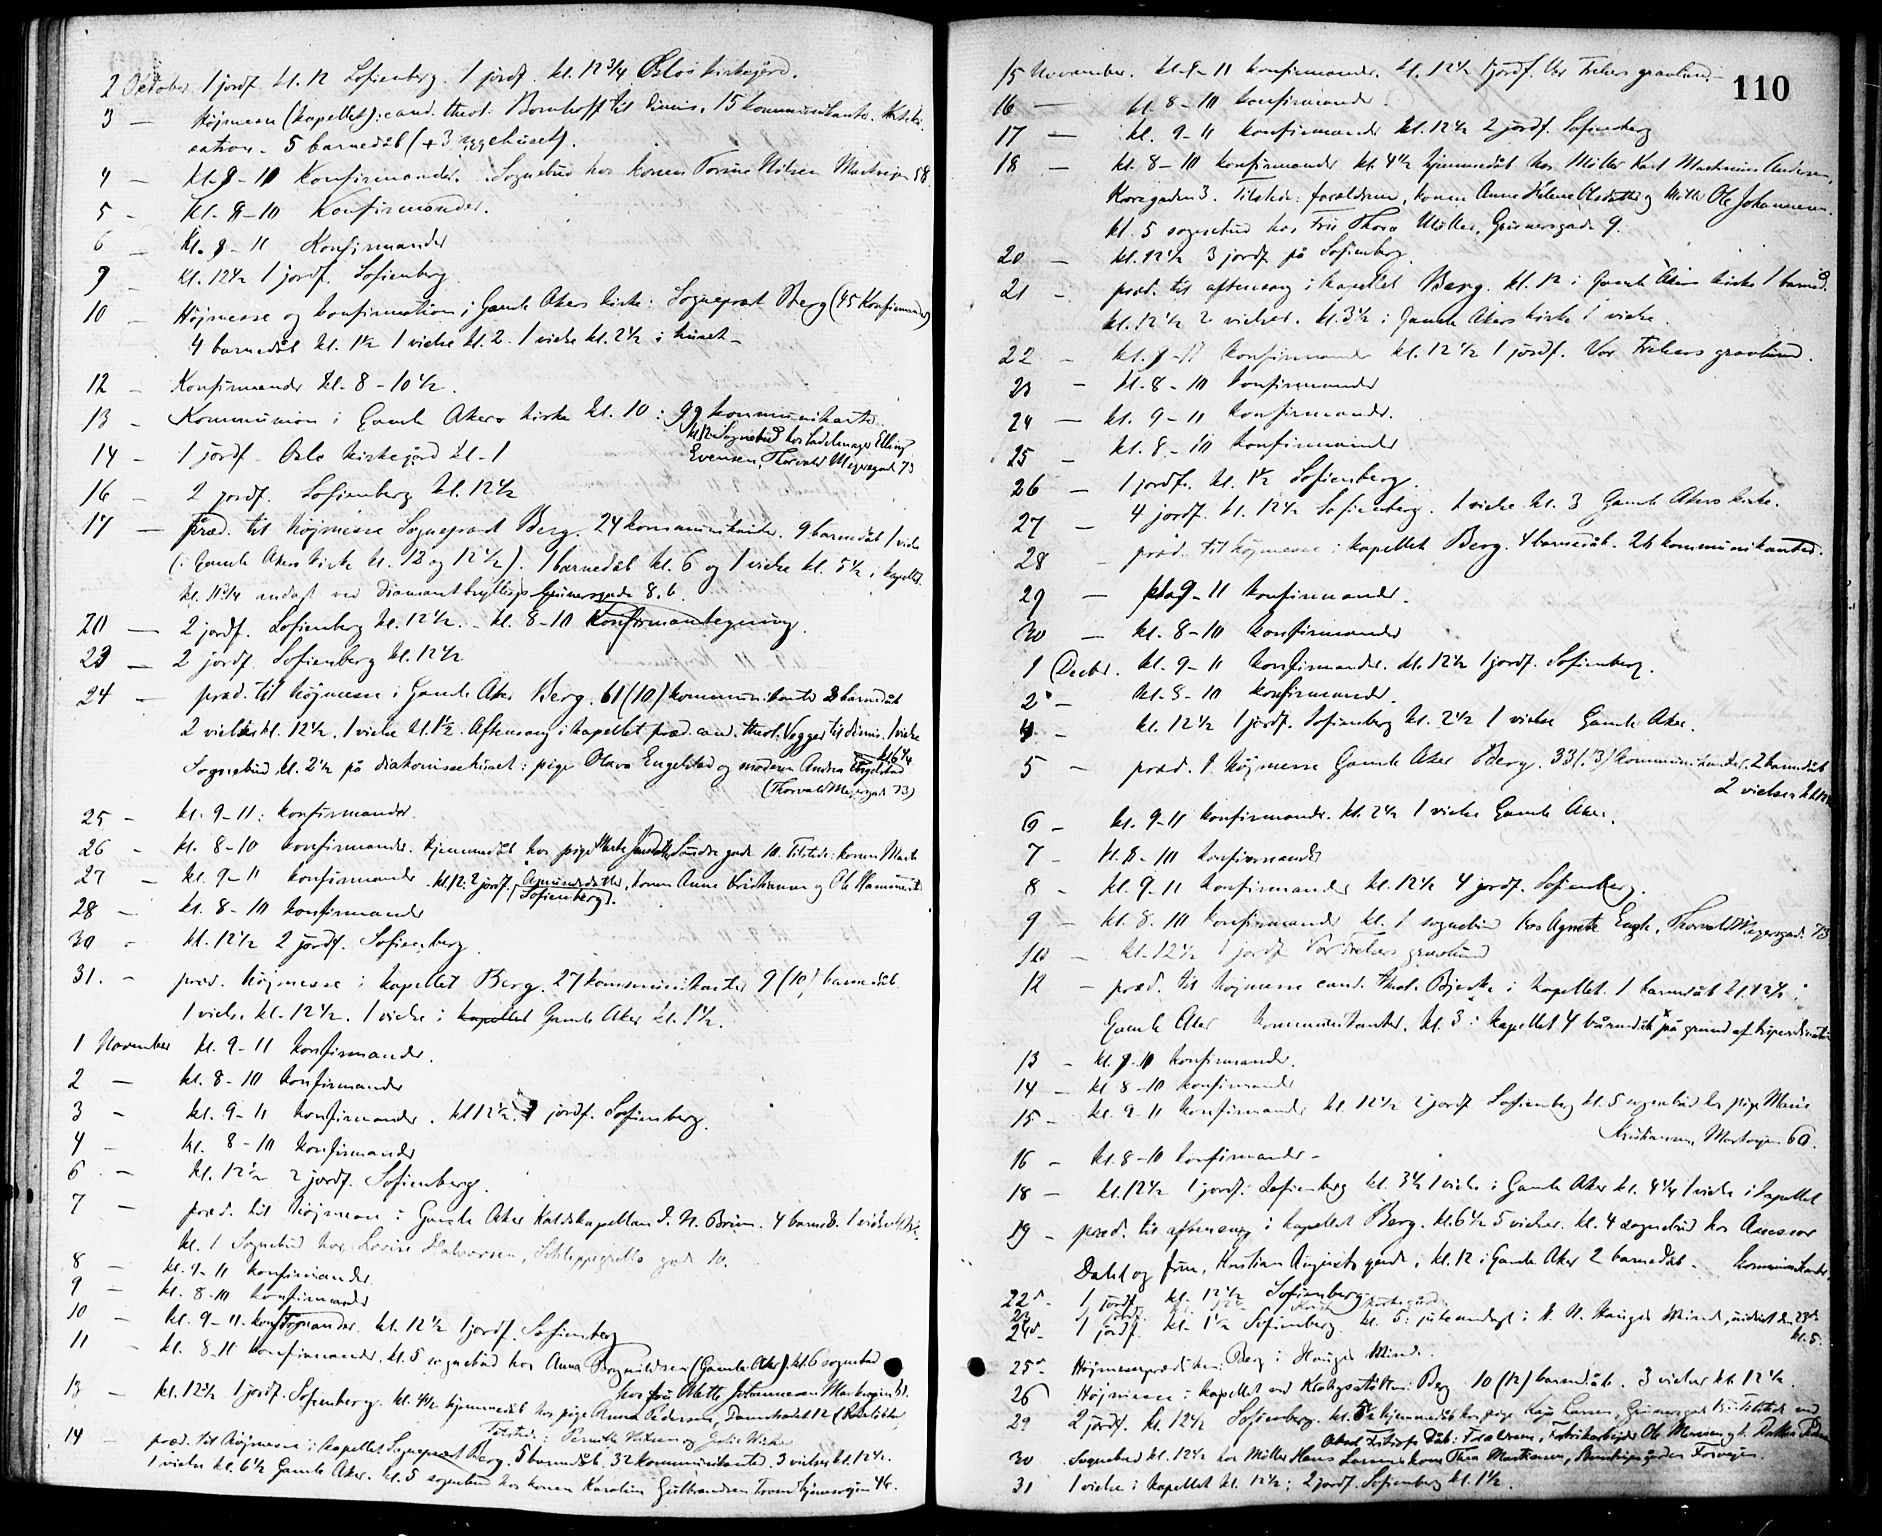 2 Oktober 1 jordf. kl. 12 Sofienberg. 1 jordf. kl. 12 3/4 Oslo kirkegård.
3 — Højmesse (kapellet): cand. theol. Bomhoff til dimis. 15 kommunikanter. Kateki-
sation. 5 barnedåb (+ 3
4 — kl. 9-11 Konfirmander. Sognebud hos konen Nilsen Markvejen 58.
5 - kl. 8-10 Konfirmander.
6 - kl. 9-11 Konfirmander
9 - kl. 12 1/2 1 jordf. Sofienberg
10 - Højmesse og konfirmation i Gamle Akers kirke: Sogneprest Berg (45 Konfirmander)
4 barnedåb kl. 1 1/2 1 vielse kl. 2. 1 vielse kl. 2 1/2 i huset -
12 - Konfirmander kl. 8-10 1/2.
13 - Kommunion i Gamle Akers kirke kl. 10: 99 kommunikanter.
kl. 12 Sognebud hos Sadelmager Elling
14 - 1 jordf. Oslo kirkegård kl. 1
Evensen, Thorvald Meyersgade 73
16 - 2 jordf. Sofienberg kl. 12 1/2
17 - Præd. til højmesse Sogneprest Berg. 24 kommunikanter. 9 barnedåb 1 vielse
(i Gamle Akers kirke kl. 12 og 12 1/2). 1 barnedåb kl. 6 og 1 vielse kl. 5 1/2 i kapellet.
kl. 11 3/4 andagt ved Diamantbryllup Grünersgade 8.b.
20 — 2 jordf. Sofienberg kl. 12 1/2. kl. 8-10 Konfirmantegning.
23 — 2 jordf. Sofienberg kl. 12 1/2
24 - præd. til højmesse i Gamle Aker Berg. 61 (10) kommunikanter 8 barnedåb
2 vielser kl. 12 1/2. 1 vielse kl. 1 1/2. Aftensang i kapellet præd. cand. theol. Vegger til dimis. 1 vielse
kl. 6 1/4
Sognebud kl. 2 1/2 på diakonissehuset: pige Olava Engelstad og moderen Andrea Engelstad
(Thorvald Meyersgade 73)
25 - kl. 9-11: konfirmander.
26 - kl. 8-10 konfirmander. hjemmedåb hos pige Søndre gade 10. Tilstede: konen Marte
27 - kl. 9-11 konfirmander kl. 12: 2 jordf. (Sofienberg). Amundsdatter, konen Anne og Ole
28 - kl. 8-10 konfirmander
30 - kl. 12 1/2 2 jordf. Sofienberg
31. - præd. højmesse i kapellet Berg. 27 kommunikanter 9 (10) barnedåb.
1 vielse kl. 12 1/2. 1 vielse i kapellet Gamle Aker kl. 1 1/2.
1 November kl. 9-11 konfirmander.
2 — kl. 8-10 konfirmander
3 - kl. 9-11 konfirmander. kl 12 1/2. 1 jordf. Sofienberg.
4 - kl. 8-10 konfirmander
6 - kl. 12 1/2 2 jordf. Sofienberg.
7 - præd. til højmesse i Gamle Aker Kaldskapellan J. N. Bruun. 4 barned. 1 vielse
kl. 1 Sognebud hos Lovise Halvorsen, Schleppegrells gade 10.
8 - kl. 9-11 konfirmander
9 - kl. 8-10 konfirmander
10 - kl. 9-11. konfirmander. kl. 12 1/2 1 jordf. Sofienberg
11 - kl. 8-11 konfirmander. kl. 5 sognebud hos Anna (Gamle Aker). kl. 6 sognebud
hos fru Mette Johannesen Markvejen
13 - kl. 12 1/2. 1 jordf. Sofienberg. kl. 4 1/2 hjemmedåb hos pige Anna Pedersen,
Tilstede: Pernille Nilsen og
14 - præd. til Højmesse i kapellet Sogneprest Berg. 5 barnedåb. 32 kommunikanter. 3 vielser kl. 12 1/2.
1 vielse kl. 6 1/2 Gamle Aker. kl. 5 sognebud hos konen Karoline Gulbrandsen Trondhjemsvejen 46.
110
15 November. kl. 9-11 konfirmander. kl. 12 1/2 1 jordf. Vor Frelsers gravlund
16 - kl. 8-10 konfirmander.
17 - kl. 9-11 konfirmander kl. 12 1/2 2 jordf. Sofienberg
18 - kl. 8-10 konfirmander kl. 4 1/2 hjemmedåb hos Møller Karl Martinius Andersen,
Korsgaden 3. Tilstede: forældrene, konen Anne Helene Olsdatter og Møller Ole Johannesen.
kl. 5 sognebud hos Fru Thora Møller, Grünersgade 9.
20 - kl. 12 1/2 3 jordf. på Sofienberg.
21 - præd. til aftensang i kapellet Berg. kl. 12 i Gamle Akers kirke 1 barned.
kl. 12 1/2 2 vielser. kl. 3 1/2 i Gamle Akers kirke 1 vielse.
22 - kl. 9-11 konfirmander kl. 12 1/2 1 jordf. Vor Frelsers gravlund.
23 - kl. 8-10 konfirmander
24 - kl. 9-11 konfirmander.
25 - kl. 8-10 konfirmander
26 - 1 jordf. kl. 1 1/2 Sofienberg.
27 - 4 jordf. kl. 12 1/2 Sofienberg. 1 vielse kl. 3 Gamle Akers kirke.
28 - præd. til højmesse i kapellet Berg. 4 barnedåb. 26 kommunikanter.
29 - kl. 9-11 konfirmander.
30 - kl. 8-10 konfirmander
1 Decbr. kl. 9-11 konfirmander. kl. 12 1/2 1 jordf. Sofienberg.
2 - kl. 8-10 konfirmander.
4 - kl. 12 1/2 1 jordf. Sofienberg kl. 2 1/2 1 vielse Gamle Aker.
5 - præd. t. højmesse Gamle Aker Berg. 33 (3) kommunikanter. 2 barnedåb
2 vielser kl. 12 1/2
6 - kl. 9-11 konfirmander. kl. 2 1/2 1 vielse Gamle Aker.
7 - kl. 8-10 konfirmander
8 - kl. 9-11 konfirmander kl. 12 1/2 4 jordf. Sofienberg.
9 - kl. 8-10 konfirmander kl. 1 sognebud hos Agnete Engh, Thorvald Meyersgade 73
10 - kl. 12 1/2 1 jordf Vor Frelsers gravlund
12 - præd. til højmesse cand. theol. Bjerke i kapellet. 1 barnedåb kl. 12 1/2 i
Gamle Aker kommunikanter. kl. 3 i kapellet 4 barnedåb på grund af
13 - kl. 9-11 konfirmander.
14 - kl. 8-10 konfirmander
15 - kl. 9-11 konfirmander kl. 12 1/2 2 jordf Sofienberg kl. 5 sognebud hos pige Marie
Kristiansen, Markvejen 60.
16 - kl. 8-10 konfirmander -
18 - kl. 12 1/2 1 jordf. Sofienberg kl. 3 1/2 1 vielse i Gamle Aker kl. 4 1/4 1 vielse i kapellet
19 - præd. til aftensang i kapellet Berg. kl. 6 1/2 5 vielser. kl. 4 sognebud hos Assessor
Dahl og frue, Kristian Augusts gade, kl. 12 i Gamle Aker 2 barnedåb - kommunikanter.
22 - 1 jordf. kl. 12 1/2 Sofienberg.
23 1 jordf. kirkegård
24 - 1 jordf. kl. 1 1/2 Sofienberg. kl. 5: juleandagt i H. N. Hauges Minde, indviet d. 23de
kl. 5.
25 - Højmesseprædiken: Berg i Hauges Minde.
26 - Højmesse i kapellet ved Krohgsstøtten: Berg 10 (12) barnedåb. 3 vielser kl. 12 1/2.
29 2 jordf. kl. 12 1/2 Sofienberg. kl. 5 1/2 hjemmedåb hos pige Kaja Larsen, Grünersgade Tilstede ved
Dåb: Forældrene, Fabrikarbejder Ole Monsen
30 Sognebud kl. 12 1/2 hos Møller Hans Larsens kone Thea Martinsen,
31 1 vielse i kapellet kl. 12 1/2; 2 jordf. Sofienberg kl. 1 1/2.